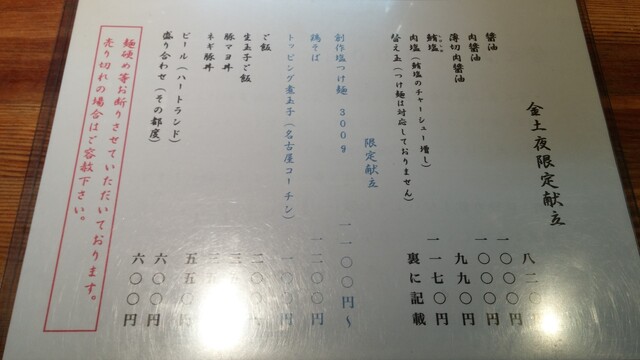 金土夜限定献立
醤油 八二〇円
肉醤油 一〇〇〇円
薄切肉醤油 一〇〇〇円
鯖塩 九九〇円
肉塩(鯖塩のチャーシュー増し) 一一七〇円
替え玉(つけ麺は対応しておりません) 裏に記載
限定献立
創作塩つけ麺 300g 一一〇〇円~
鶏そば 一一〇〇円
トッピング煮玉子(名古屋コーチン) 一〇〇円
ご飯
生玉子ご飯
豚マヨ丼
ネギ豚丼
ビール(ハートランド)
盛り合わせ(その都度) 六〇〇円
麺硬め等お断りさせていただいております。
売り切れの場合はご容赦下さい。